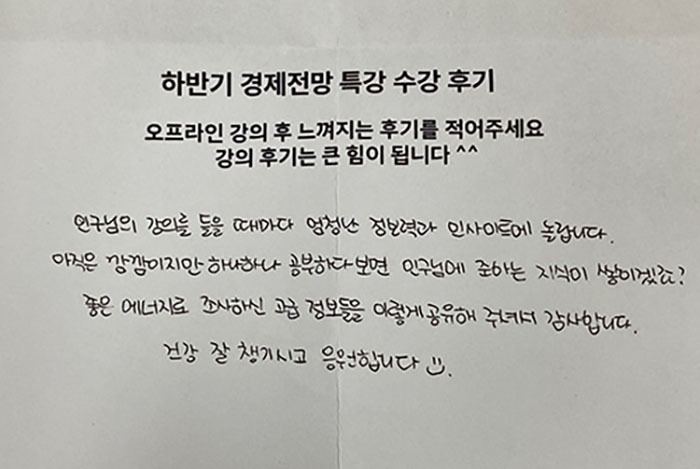 하반기 경제전망 특강 수강 후기
오프라인 강의 후 느껴지는 후기를 적어주세요
강의 후기는 큰 힘이 됩니다 ^^
인구님의 강의를 들을 때마다 엄청난 정보력과 인사이트에 놀랍니다.
아직은 깜깜이지만 하나하나 공부하다보면 인구님에 준하는 지식이 쌓이겠죠?
좋은 에너지로 조사하신 고급 정보들을 이렇게 공유해 주셔서 감사합니다.
건강 잘 챙기시고 응원합니다 :).